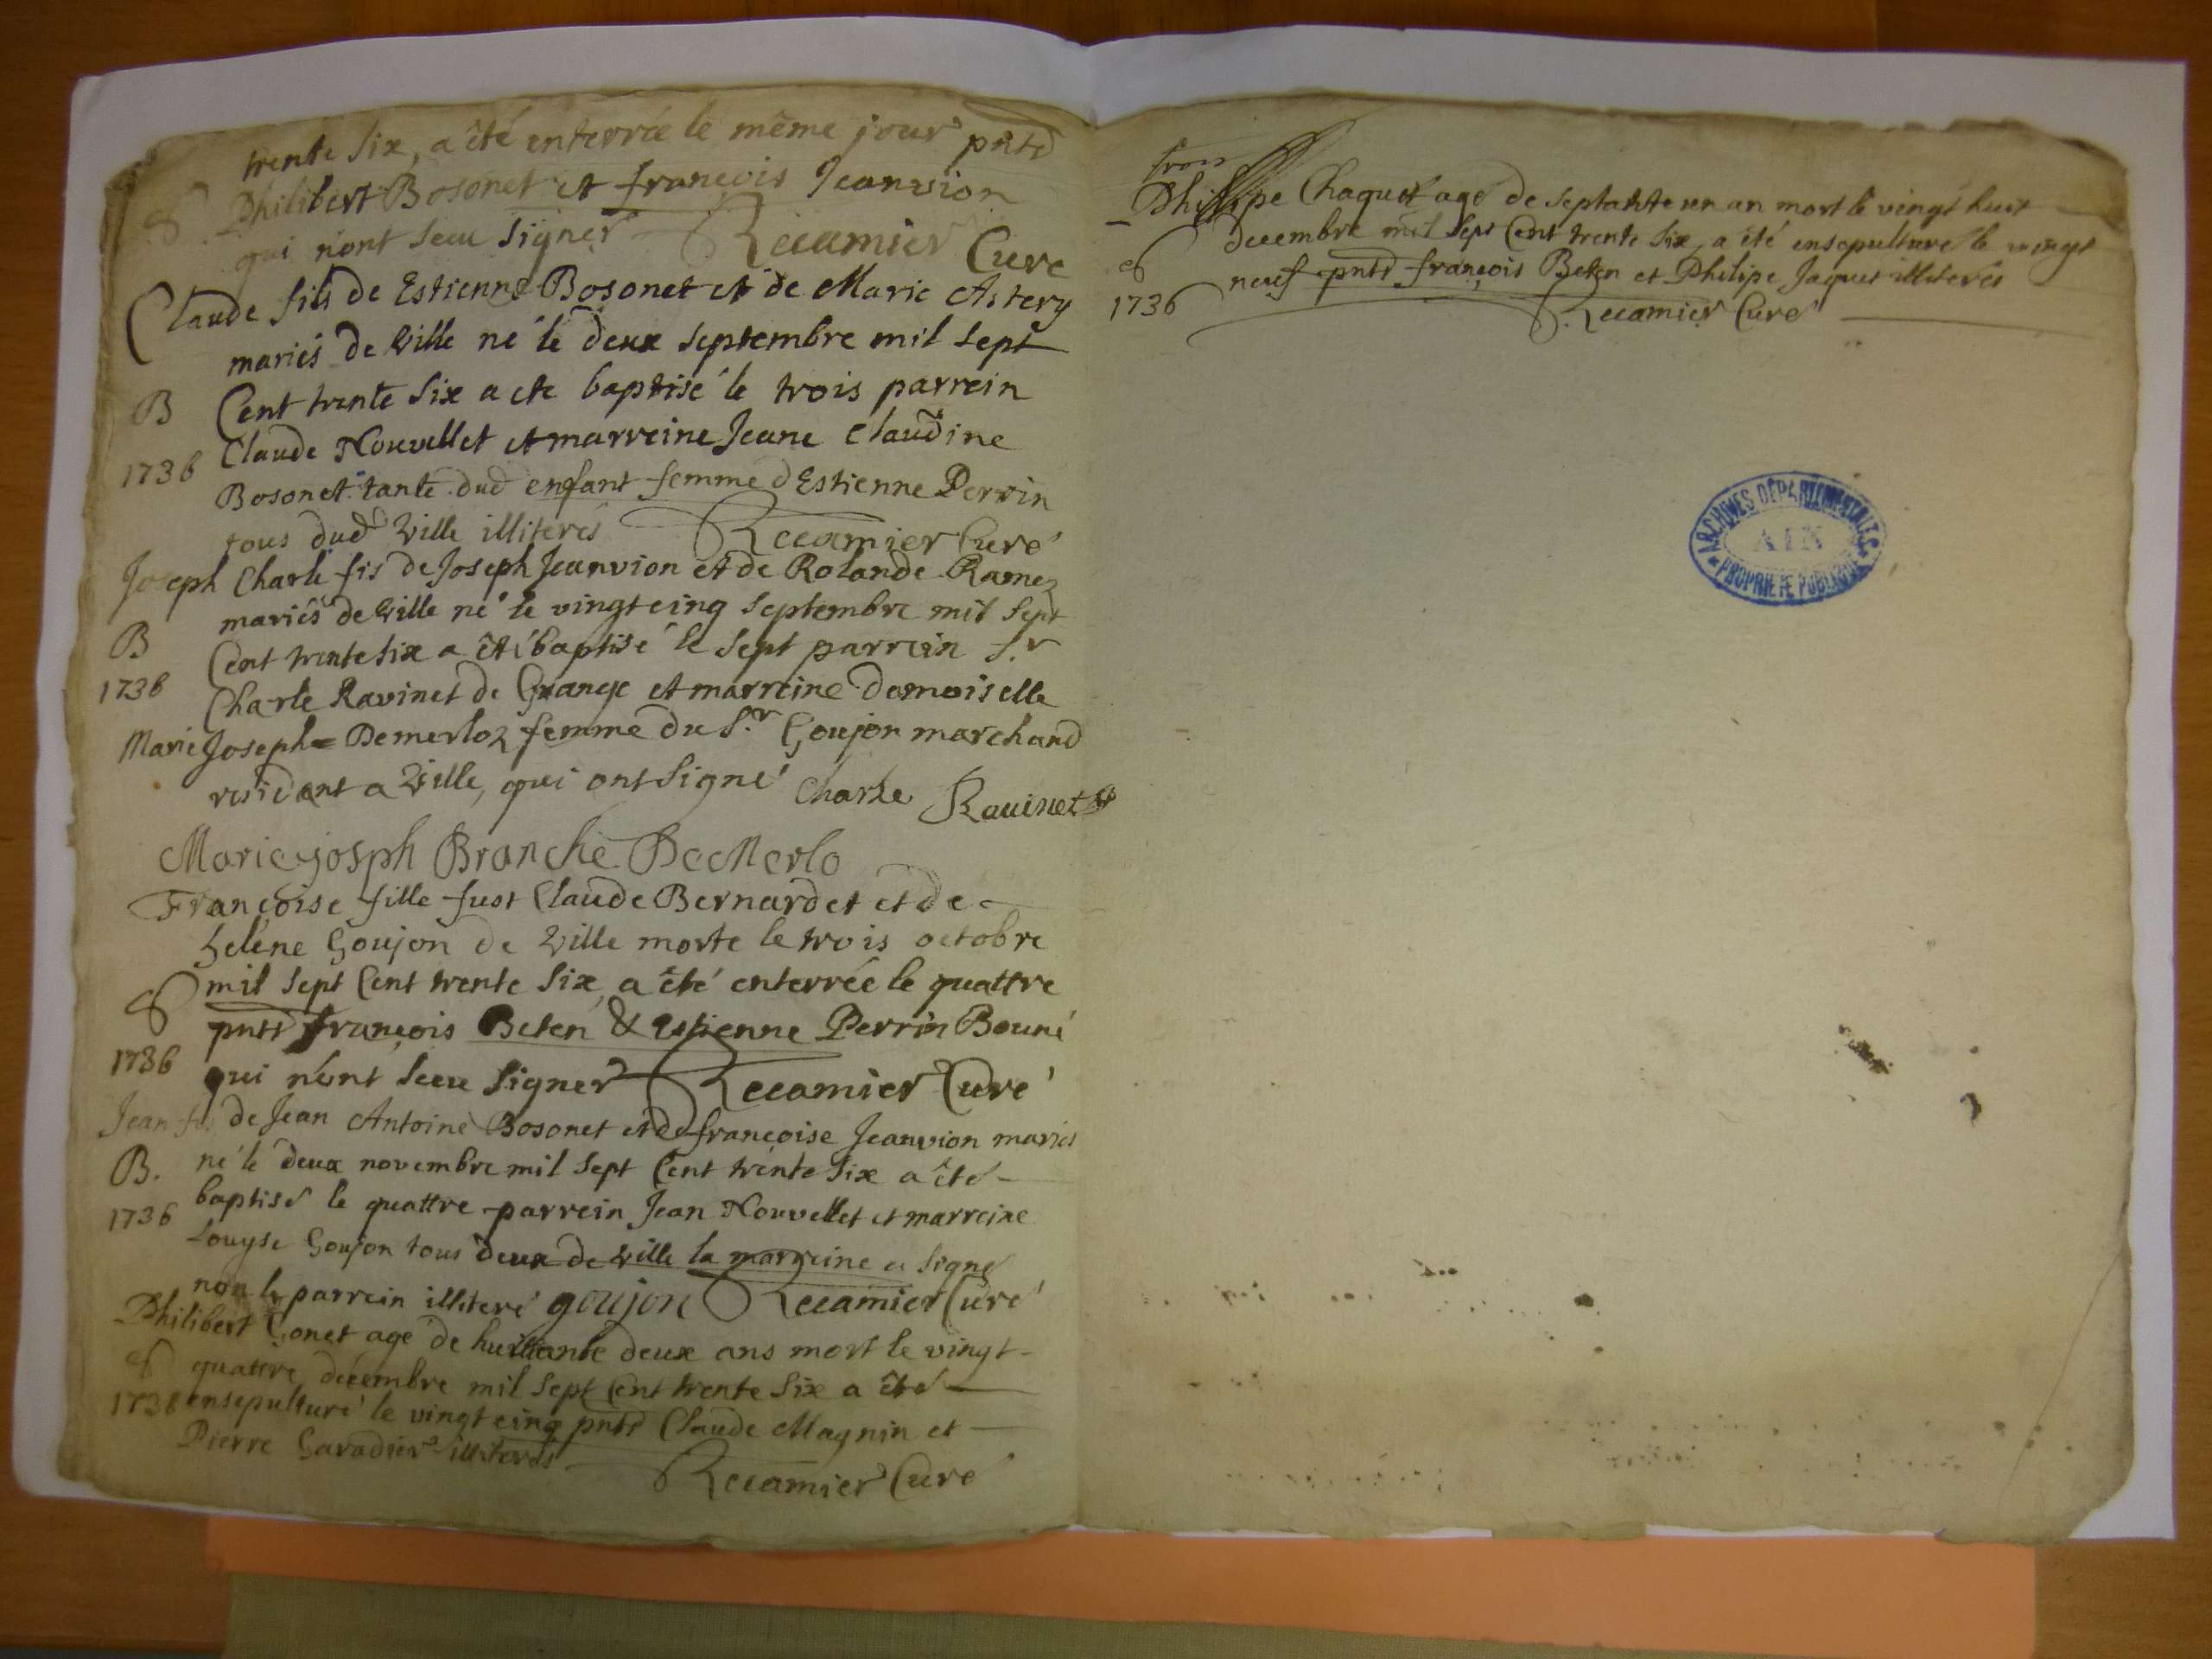 trente six, a êté enterrée le même jour pnts
S Philibert Bosonet et françois Jeanvion
qui n'ont sceu signer Recamier Curé
Claude fils de Estienne Bosonet et de Marie Astery
mariés de Ville né le deux septembre mil sept
B Cent trente six a ete baptisé le trois parrein
Claude Nouvellet et marreine Jeane Claudine
1736
Bosonet tante dud enfant femme d Estienne Perrin
tous dud Ville illiterés Recamier Curé
Joseph Charle fis de Joseph Jeanvion et de Rolande Ramez
mariés de Ville né le vingt cinq septembre mil sept
B Cent trente six a êté baptisé le sept parrein S.r
1736 Charle Ravinet de Grange et marreine demoiselle
Marie Joseph Demerloz femme du S.r Goujon marchand
resident a Ville, qui ont signé Charle Ravinet
Marie josph Branche DeMerlo
Françoise fille fust Claude Bernardet et de
helène Goujon de Ville morte le trois octobre
S mil sept Cent trente six, a êté enterrée le quattre
pnts françois Beten & Estienne Perrin Bouné
1736 qui n'ont sceu signer Recamier Curé
Jean fis de Jean Antoine Bosonet et de françoise Jeanvion mariés
B. né le deux novembre mil sept Cent trente six a êté
baptisé le quattre parrein Jean Nouvellet et marreine
1736
Louyse Goujon tous deux de Ville la marreine a signé
non le parrein illiteré goujon Recamier Curé
Philibert Gonet agé de huittante deux ans mort le vingt
S quattre décembre mil sept Cent trente six a êté
1736 ensepulturé le vingt cinq pnts Claude Magnin et
Pierre Garadier illiterés
Recamier Curé
Philipe Chaquet agé de septante un an mort le vingt huit
S decembre mil sept Cent trente six, a êté ensepulturé le vingt
neuf pnts françois Beten et Philipe Jaquet illiterés
1736 Recamier Curé
ARCHIVES DÉPARTEMENTALES
AIN
PROPRIÉTÉ PUBLIQUE